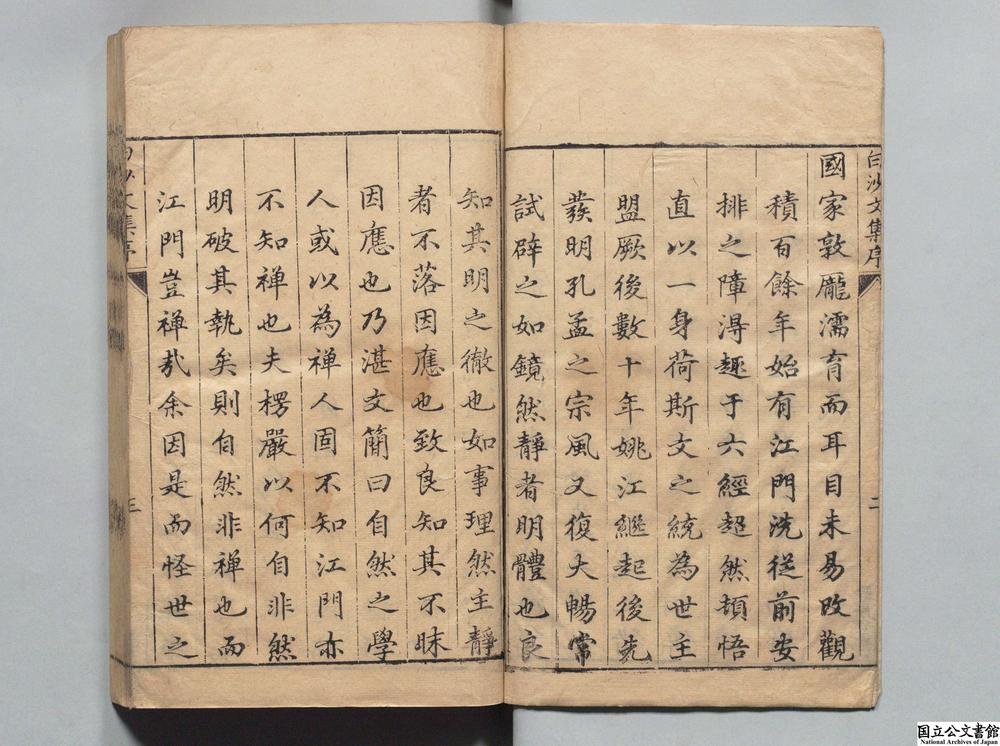 白沙文集序
二
國家敦龐濡育而耳目未易改觀
積百餘年始有江門洗從前安
排之障淂趣于六經超然頓悟
直以一身荷斯文之統為世主
盟厥後數十年姚江繼起後先
發明孔孟之宗風又復大暢常
試辟之如鏡然靜者明體也良
知其明之徹也如事理然主靜
者不落因應也致良知其不昧
因應也乃湛文簡曰自然之學
人或以為禅人固不知江門亦
不知禅也夫楞嚴以何自非然
明破其執矣則自然非禅也而
江門豈禅㢤余因是而怪世之
白沙文集序
三
国立公文書館
National Archives of Japan